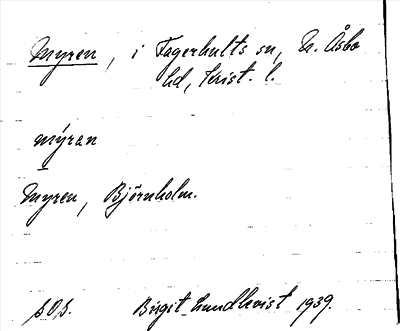 Myren, i Fagerhults sn, N. Åsbo
hd, Krist. l.
mýrən
Myren, Björnholm.
s. O. s. Birgit Lundkvist 1939.